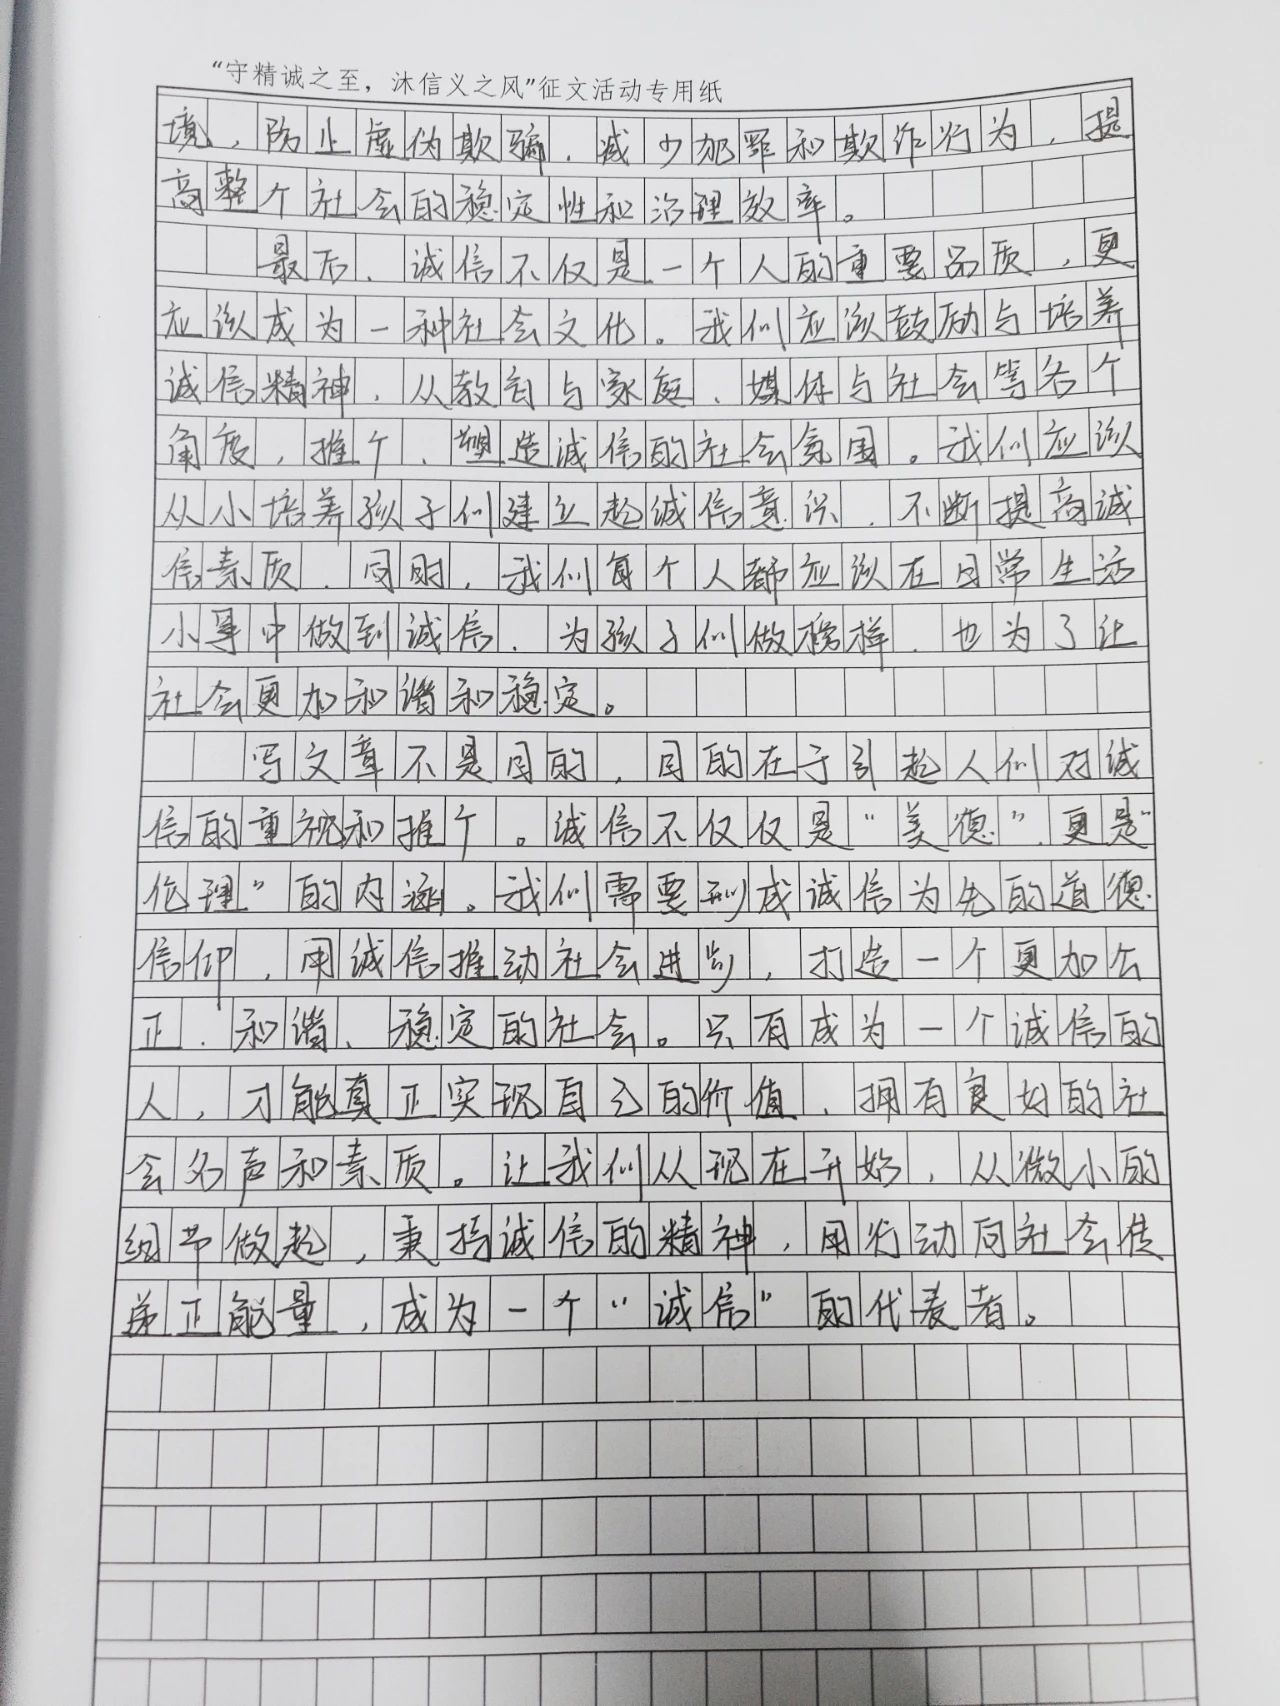 “守精诚之至，沐信义之风”征文活动专用纸
境，防止虚伪欺骗，减少犯罪和欺诈行为，提
高整个社会的稳定性和治理效率。
最后，诚信不仅是一个人的重要品质，更
应该成为一种社会文化。我们应该鼓励与培养
诚信精神，从教育与家庭、媒体与社会等各个
角度，推广、塑造诚信的社会氛围。我们应该
从小培养孩子们建立起诚信意识，不断提高诚
信素质，同时，我们每个人都应该在日常生活
小事中做到诚信，为孩子们做榜样，也为了让
社会更加和谐和稳定。
写文章不是目的，目的在于引起人们对诚
信的重视和推广。诚信不仅仅是“美德”，更是“
伦理”的内涵。我们需要形成诚信为先的道德
信仰，用诚信推动社会进步，打造一个更加公
正、和谐、稳定的社会。只有成为一个诚信的
人，才能真正实现自己的价值，拥有良好的社
会名声和素质。让我们从现在开始，从微小的
细节做起，秉持诚信的精神，用行动向社会传
递正能量，成为一个“诚信”的代表者。